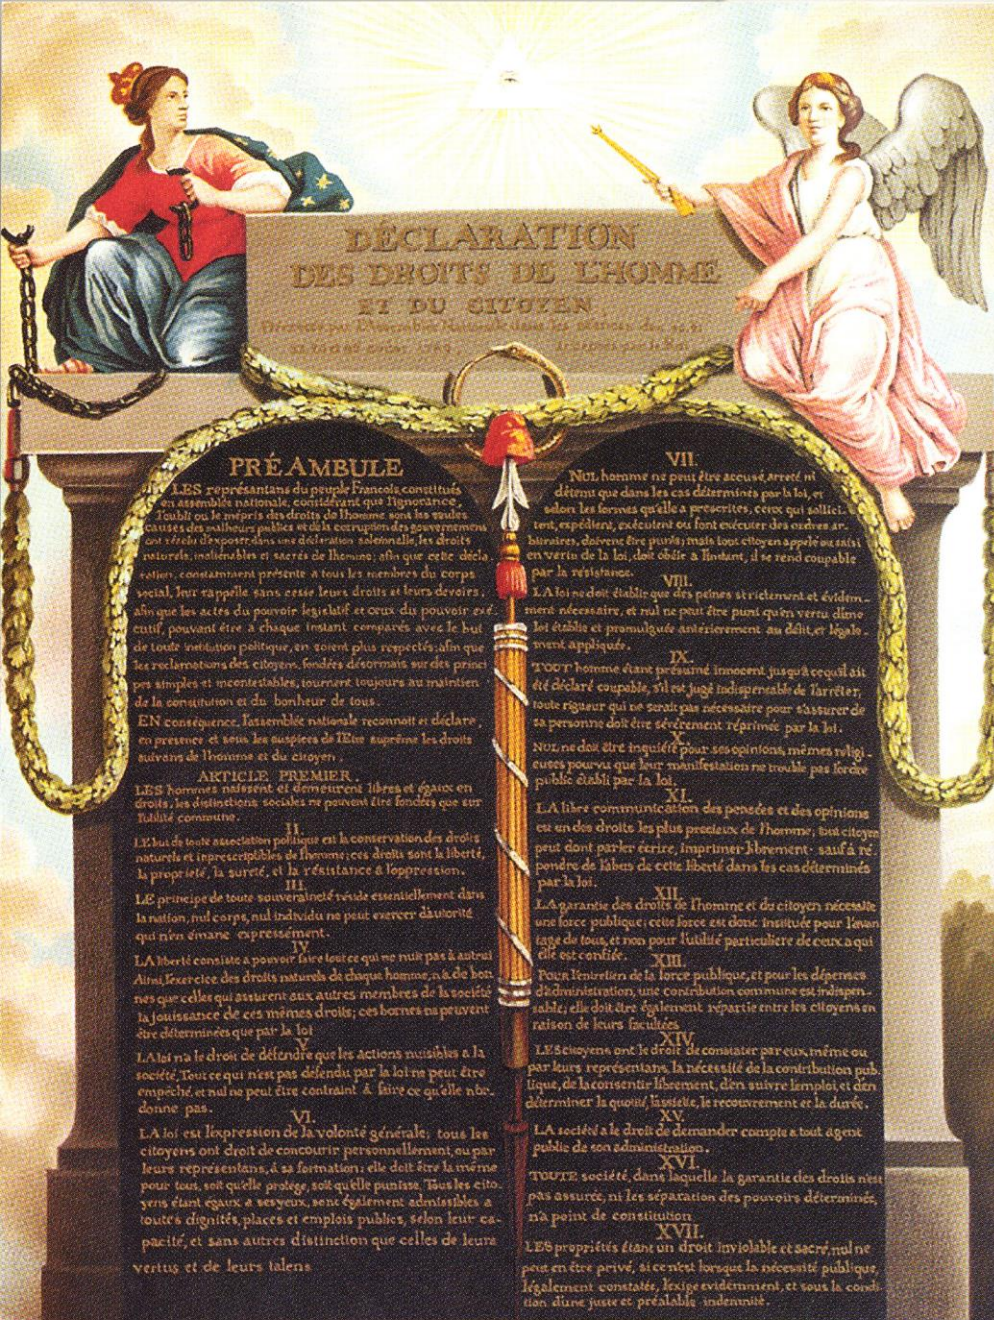 DÉCLARATION
DES DROITS DE L'HOMME
ET DU CITOYEN,
Décretés par l'Assemblée Nationale dans les séances des 20, 21
1789, acceptés par le Roi
PRÉAMBULE
LES représentans du peuple François, constitués
en assemblée nationale, considérant que l'ignorance,
l'oubli ou le mépris des droits de l'homme sont les seules
causes des malheurs publics et de la corruption des gouvernemens
ont résolu d'exposer, dans une déclaration solemnelle, les droits
naturels, inaliénables et sacrés de l'homme; afin que cette décla
ration, constamment présente a tous les membres du corps
social, leur rappelle sans cesse leurs droits et leurs devoirs,
afin que les actes du pouvoir legislatif et ceux du pouvoir exé-
cutif, pouvant être a chaque instant comparés avec le but
de toute institution politique, en soient plus respectés; afin que
les reclamations des citoyens, fondées désormais sur des princi
pes simples et incontestables, tournent toujours au maintien
de la constitution et du bonheur de tous.
EN conséquence, l'assemblée nationale reconnoit et déclare,
en presence et sous les auspices de l'Etre suprême les droits
suivans de l'homme et du citoyen,
ARTICLE PREMIER.
LES hommes naissent et demeurent libres et égaux en
droits, les distinctions sociales ne peuvent être fondées que sur
l'utilité commune.
II.
LE but de toute association politique est la conservation des droits
naturels et inprescriptibles de l'homme; ces droits sont la liberté,
la proprieté, la sureté, et la résistance à l'oppression.
III.
LE principe de toute souveraineté réside essentiellement dans
la nation, nul corps, nul individu ne peut exercer d'autorité
qui n'en émane expressément.
IV.
LA liberté consiste a pouvoir faire tout ce qui ne nuit pas à autrui
Ainsi, l'exercice des droits naturels de chaque homme, n'a de bor-
nes que celles qui assurent aux autres membres de la société
la jouissance de ces mêmes droits; ces bornes ne peuvent
être déterminées que par la loi
V.
LA loi n'a le droit de défendre que les actions nuisibles a la
société. Tout ce qui n'est pas défendu par la loi ne peut être
empêché, et nul ne peut être contraint à faire ce qu'elle n'or-
donne pas.
VI.
LA loi est l'expression de la volonté générale; tous les
citoyens ont droit de concourir personnellement, ou par
leurs représentans, à sa formation; elle doit être la même
pour tous, soit qu'elle protege, soit qu'elle punisse. Tous les cito-
yens étant égaux a ses yeux, sont également admissibles a
toutes dignités, places et emplois publics, selon leur ca-
pacité, et sans autres distinction que celles de leurs
vertus et de leurs talens
VII.
NUL homme ne peut être accusé, arreté, ni
détenu que dans les cas déterminés par la loi, et
selon les formes qu'elle a prescrites, ceux qui sollici-
tent, expédient, exécutent ou font exécuter des ordres ar-
bitraires, doivent être punis; mais tout citoyen appelé ou saisi
en vertu de la loi, doit obéir a l'instant, il se rend coupable
par la résistance.
VIII.
LA loi ne doit établir que des peines strictement et évidem-
ment nécessaire, et nul ne peut être puni qu'en vertu d'une
loi établie et promulguée antérierement au délit, et légale-
ment appliquée.
IX.
TOUT homme étant présumé innocent jusqu'à ce qu'il ait
été déclaré coupable, s'il est jugé indispensable de l'arrêter,
toute rigueur qui ne serait pas nécessaire pour s'assurer de
sa personne doit être sévèrement réprimée par la loi.
X.
NUL ne doit être inquiété pour ses opinions, mêmes religi-
euses pourvu que leur manifestation ne trouble pas l'ordre
public établi par la loi.
XI.
LA libre communication des pensées et des opinions
est un des droits les plus precieux de l'homme; tout citoyen
peut dont parler écrire, imprimer librement, sauf à ré-
pondre de l'abus de cette liberté dans les cas déterminés
par la loi.
XII.
LA garantie des droits de l'homme et du citoyen nécessite
une force publique; cette force est donc instituée pour l'avan
tage de tous, et non pour l'utilité particuliere de ceux a qui
elle est confiée.
XIII.
POUR l'entretien de la force publique, et pour les dépenses
d'administration, une contribution commune est indispen-
sable; elle doit être également répartie entre les citoyens en
raison de leurs facultées
XIV.
LES citoyens ont le droit de constater par eux même ou
par leurs représentans, la nécessité de la contribution pub-
lique, de la consentir librement, d'en suivre l'emploi, et d'en
déterminer la quotité, l'assiette, le recouvrement et la durée.
XV.
LA société a le droit de demander compte a tout agent
public de son administration.
XVI.
TOUTE société, dans laquelle la garantie des droits n'est
pas assurée, ni les séparation des pouvoirs déterminée,
n'a point de constitution
XVII.
LES propriétés étant un droit inviolable et sacré, nul ne
peut en être privé, si ce n'est lorsque la nécessité publique,
légalement constatée, l'exige evidemment, et sous la condi-
tion d'une juste et préalable indemnité.